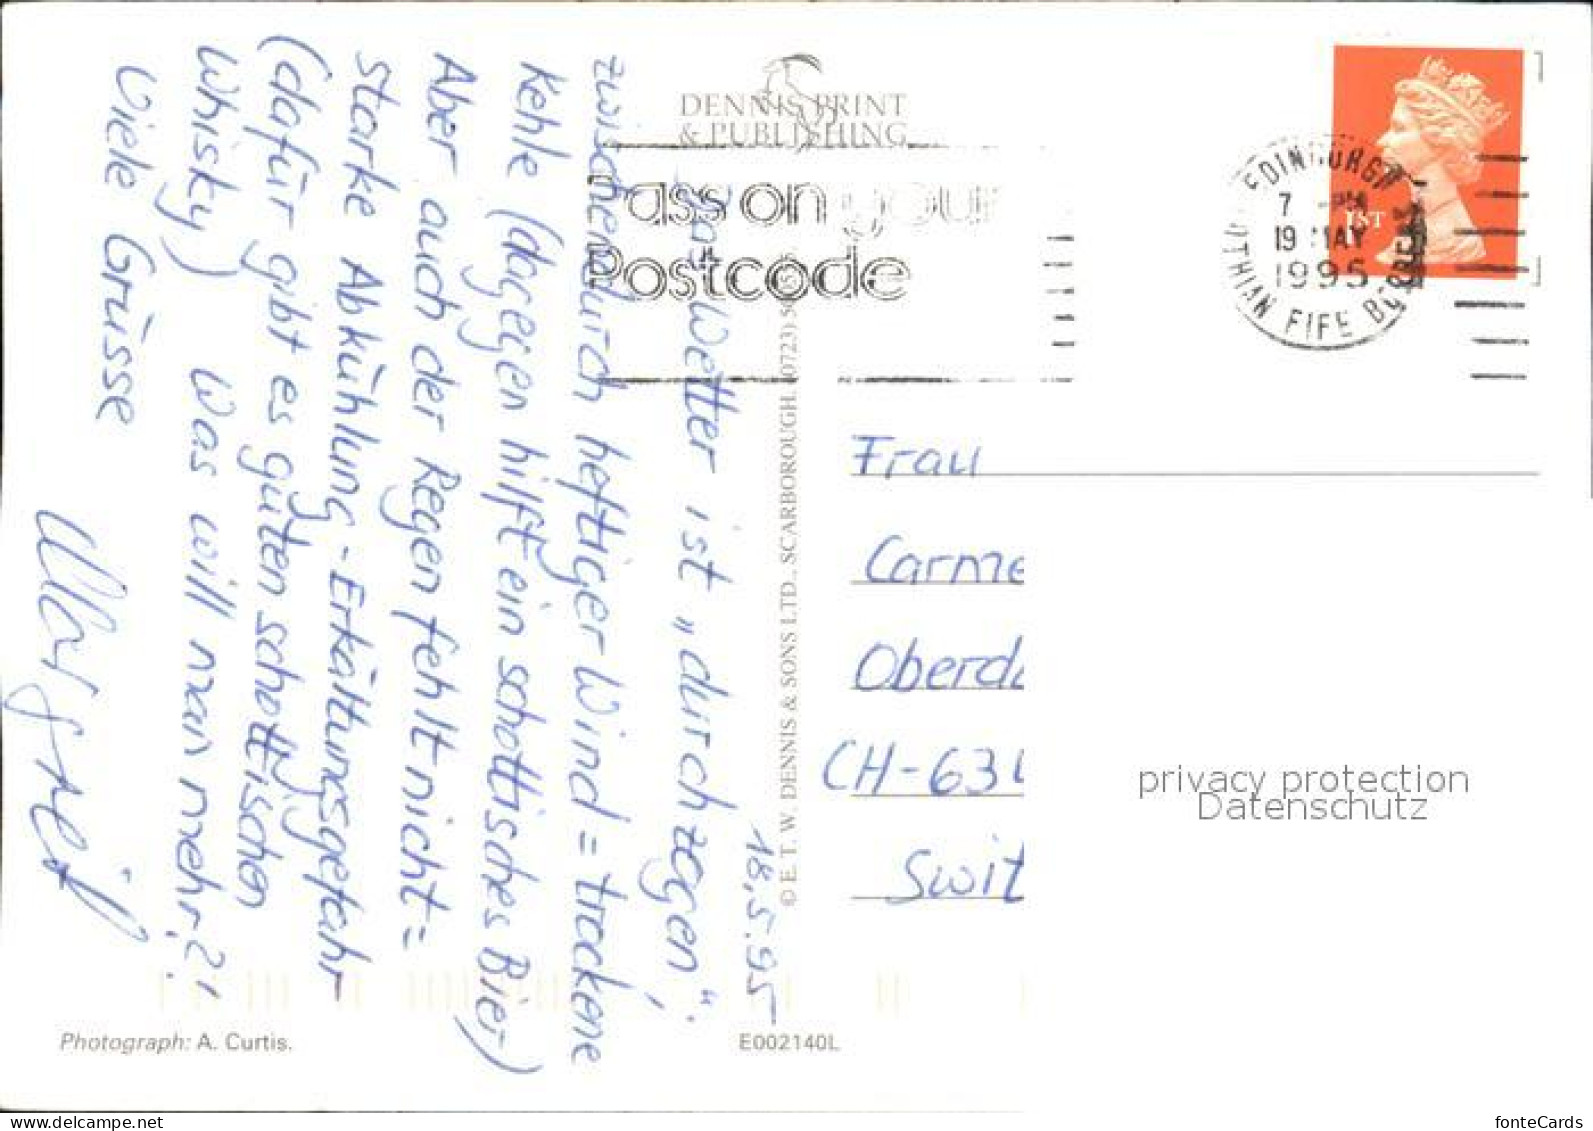 DENNIS PRINT
& PUBLISHING
Pass on your
Postcode
EDINBURGH
7 PM
19 MAY
1995
LOTHIAN FIFE BORDERS
1ST
18.5.95
Das Wetter ist „durchzogen“.
zwischendurch heftiger Wind = trockene
Kehle (dagegen hilft ein schottisches Bier)
Aber auch der Regen fehlt nicht =
starke Abkühlung - Erkältungsgefahr
(dafür gibt es guten schottischen
Whisky) Was will man mehr?!
Viele Grüsse
© E. T. W. DENNIS & SONS LTD., SCARBOROUGH. (0723)
Frau
Carme
Oberd
CH-63
Swit
privacy protection
Datenschutz
Photograph: A. Curtis.
E002140L
www.delcampe.net
fonteCards